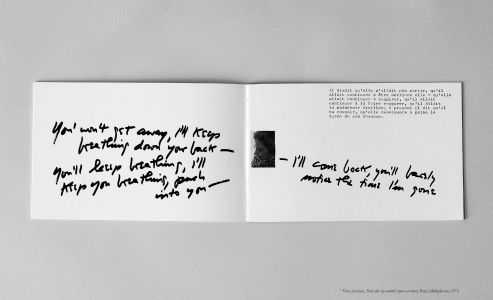 You won't get away, I'll keep
breathing down your back —
You'll keep breathing, I'll
keep you breathing, push
into you —
Il disait qu'elle n'allait pas partir, qu'il
allait continuer à être derrière elle - qu'elle
allait continuer à respirer, qu'il allait
continuer à la faire respirer, qu'il allait
la maintenir
à présent il dit qu'il
va revenir, qu'elle remarquera à peine la
durée de son absence.
— I'll come back, you'll barely
notice the time I'm gone
Vito Acconci,
Paris,